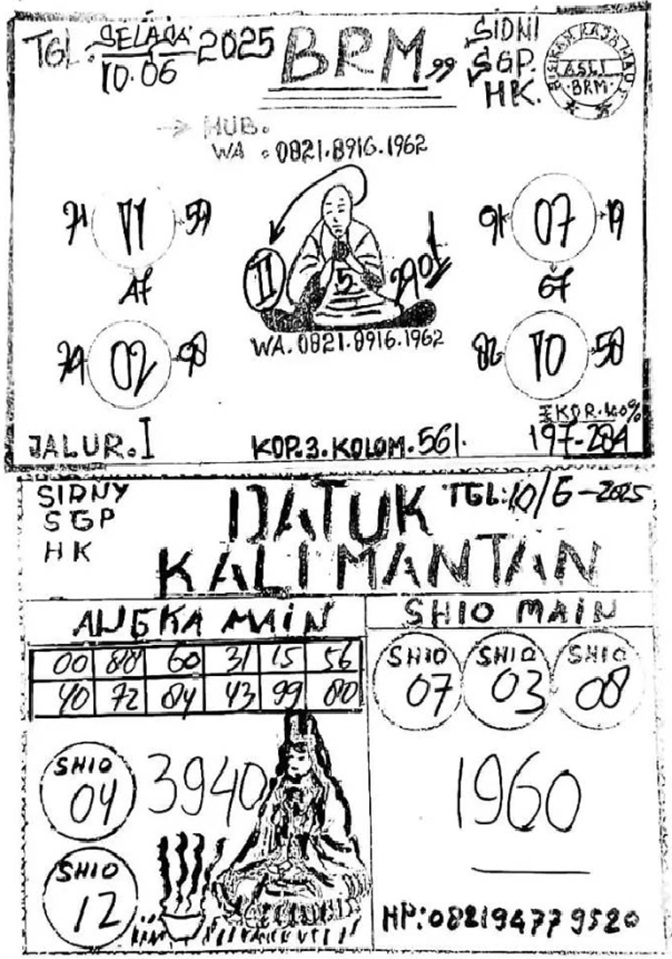 TGL. SELASA 2025
10.06
BRM 99
SIDNI
SGP.
HK.
ASLI
BRM
HUB.
WA. 0821.8916.1962
71 11 59
A7
91 07 19
67
II 5
WA. 0821.8916.1962
02 98
82 10 58
EKOR. 100%
JALUR. I
KOP. 3. KOLOM. 561.
197-284
SIDNY
SGP
HK
DATUK
KALIMANTAN
TGL: 10/6-2025
ANGKA MAIN
00 88 60 31 15 56
40 72 84 43 99 80
SHIO MAIN
SHIO 07
SHIO 03
SHIO 08
SHIO 04
3940
1960
SHIO 12
HP: 082194779520